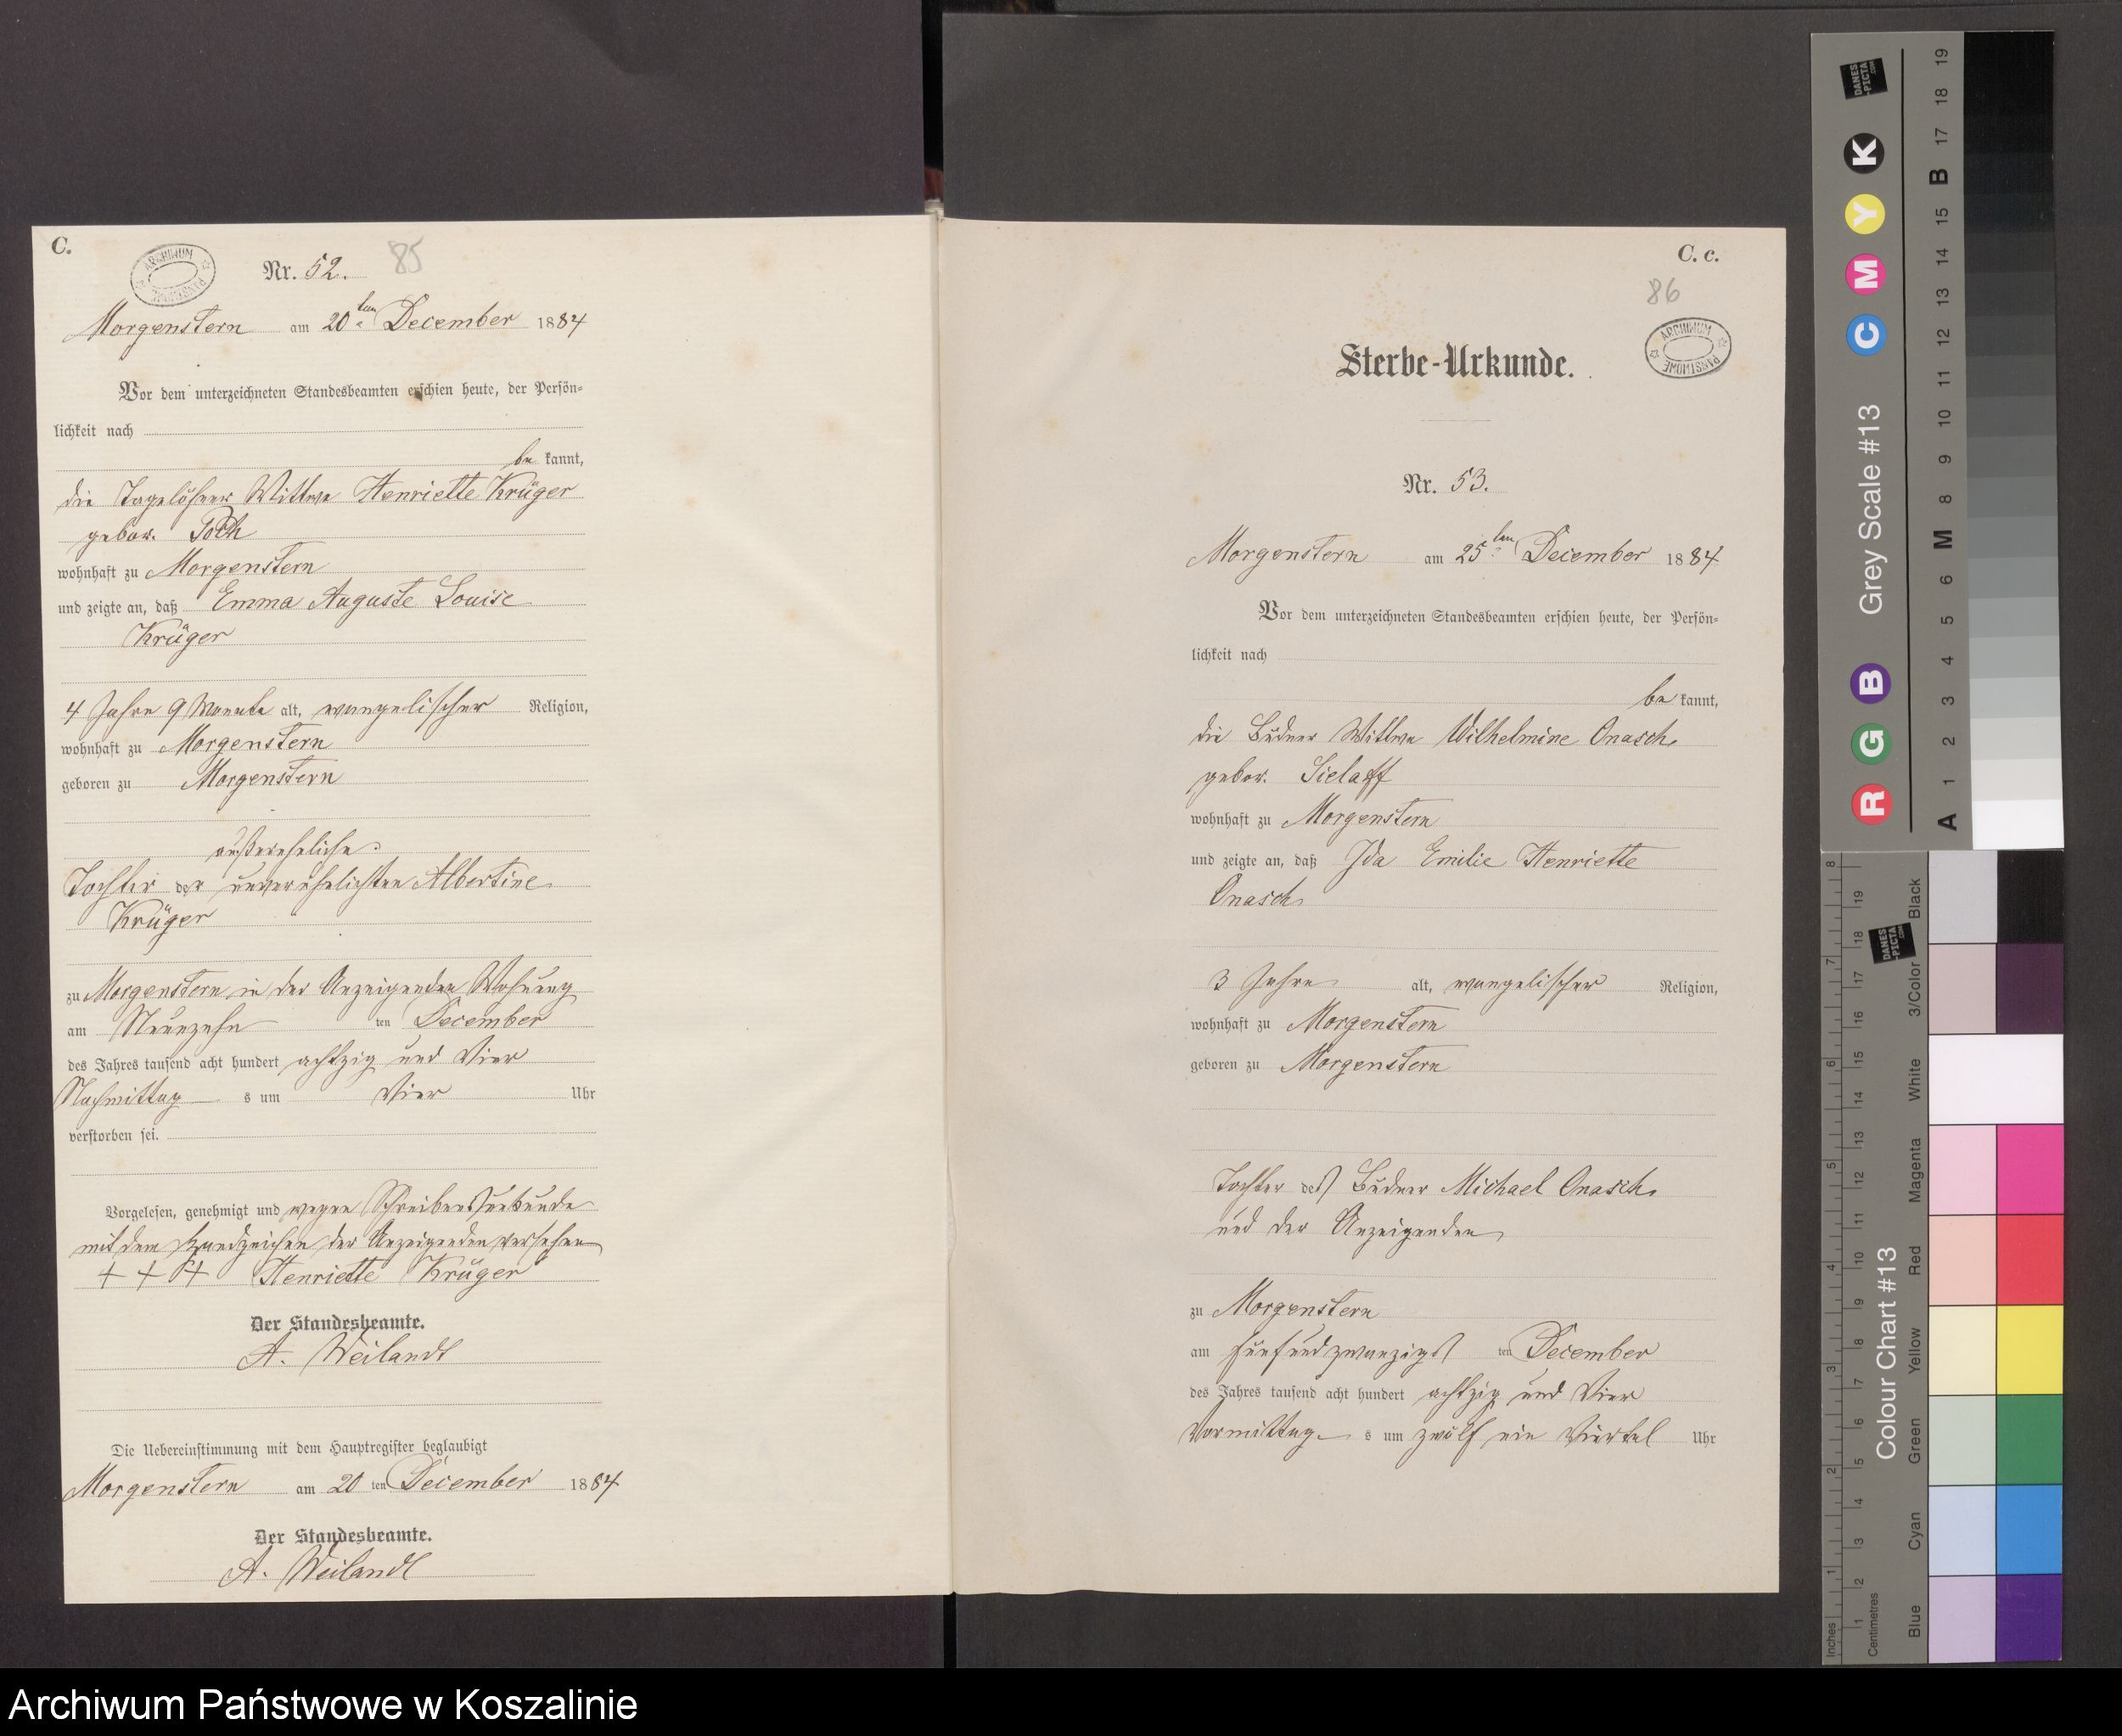 C.
ARCHIWUM PAŃSTWOWE
Nr. 52.
85
Morgenstern am 20ten December 1884
Vor dem unterzeichneten Standesbeamten erschien heute, der Persön-
lichkeit nach
be kannt,
die Tagelöhner Wittwe Henriette Krüger
gebor.
wohnhaft zu Morgenstern
und zeigte an, daß Emma Auguste Louise
Krüger
4 Jahre 9 Monate alt, evangelischer Religion,
wohnhaft zu Morgenstern
geboren zu Morgenstern
außereheliche
Tochter der unverehelichten Albertine
Krüger
zu Morgenstern in der Anzeigenden Wohnung
am Neunzehn ten December
des Jahres tausend acht hundert achtzig und Vier
Nachmittag s um Vier Uhr
verstorben sei.
Vorgelesen, genehmigt und wegen Schreibensunkunde
mit dem Handzeichen der Anzeigenden versehen
+ + + Henriette Krüger
Der Standesbeamte.
A. Weilandt
Die Uebereinstimmung mit dem Hauptregister beglaubigt
Morgenstern am 20 ten December 1884
Der Standesbeamte.
A. Weilandt
C. c.
86
ARCHIWUM PAŃSTWOWE
Sterbe-Urkunde.
Nr. 53.
Morgenstern am 25ten December 1884
Vor dem unterzeichneten Standesbeamten erschien heute, der Persön-
lichkeit nach
be kannt,
die Büdner Wittwe Wilhelmine Onasch
gebor. Sielaff
wohnhaft zu Morgenstern
und zeigte an, daß Ida Emilie Henriette
Onasch
3 Jahre alt, evangelischer Religion,
wohnhaft zu Morgenstern
geboren zu Morgenstern
Tochter des Büdner Michael Onasch
und der Anzeigenden
zu Morgenstern
am fünfundzwanzigs ten December
des Jahres tausend acht hundert achtzig und Vier
Vormittag s um zwölf ein Viertel Uhr
DANES-PICTA.COM
Grey Scale #13
R G B C M Y K
A 1 2 3 4 5 6 M 8 9 10 11 12 13 14 15 B 17 18 19
DANES-PICTA.COM
Colour Chart #13
Blue Cyan Green Yellow Red Magenta White 3/Color Black
Inches 1 2 3 4 5 6 7 8
Centimetres 1 2 3 4 5 6 7 8 9 10 11 12 13 14 15 16 17 18 19
Archiwum Państwowe w Koszalinie